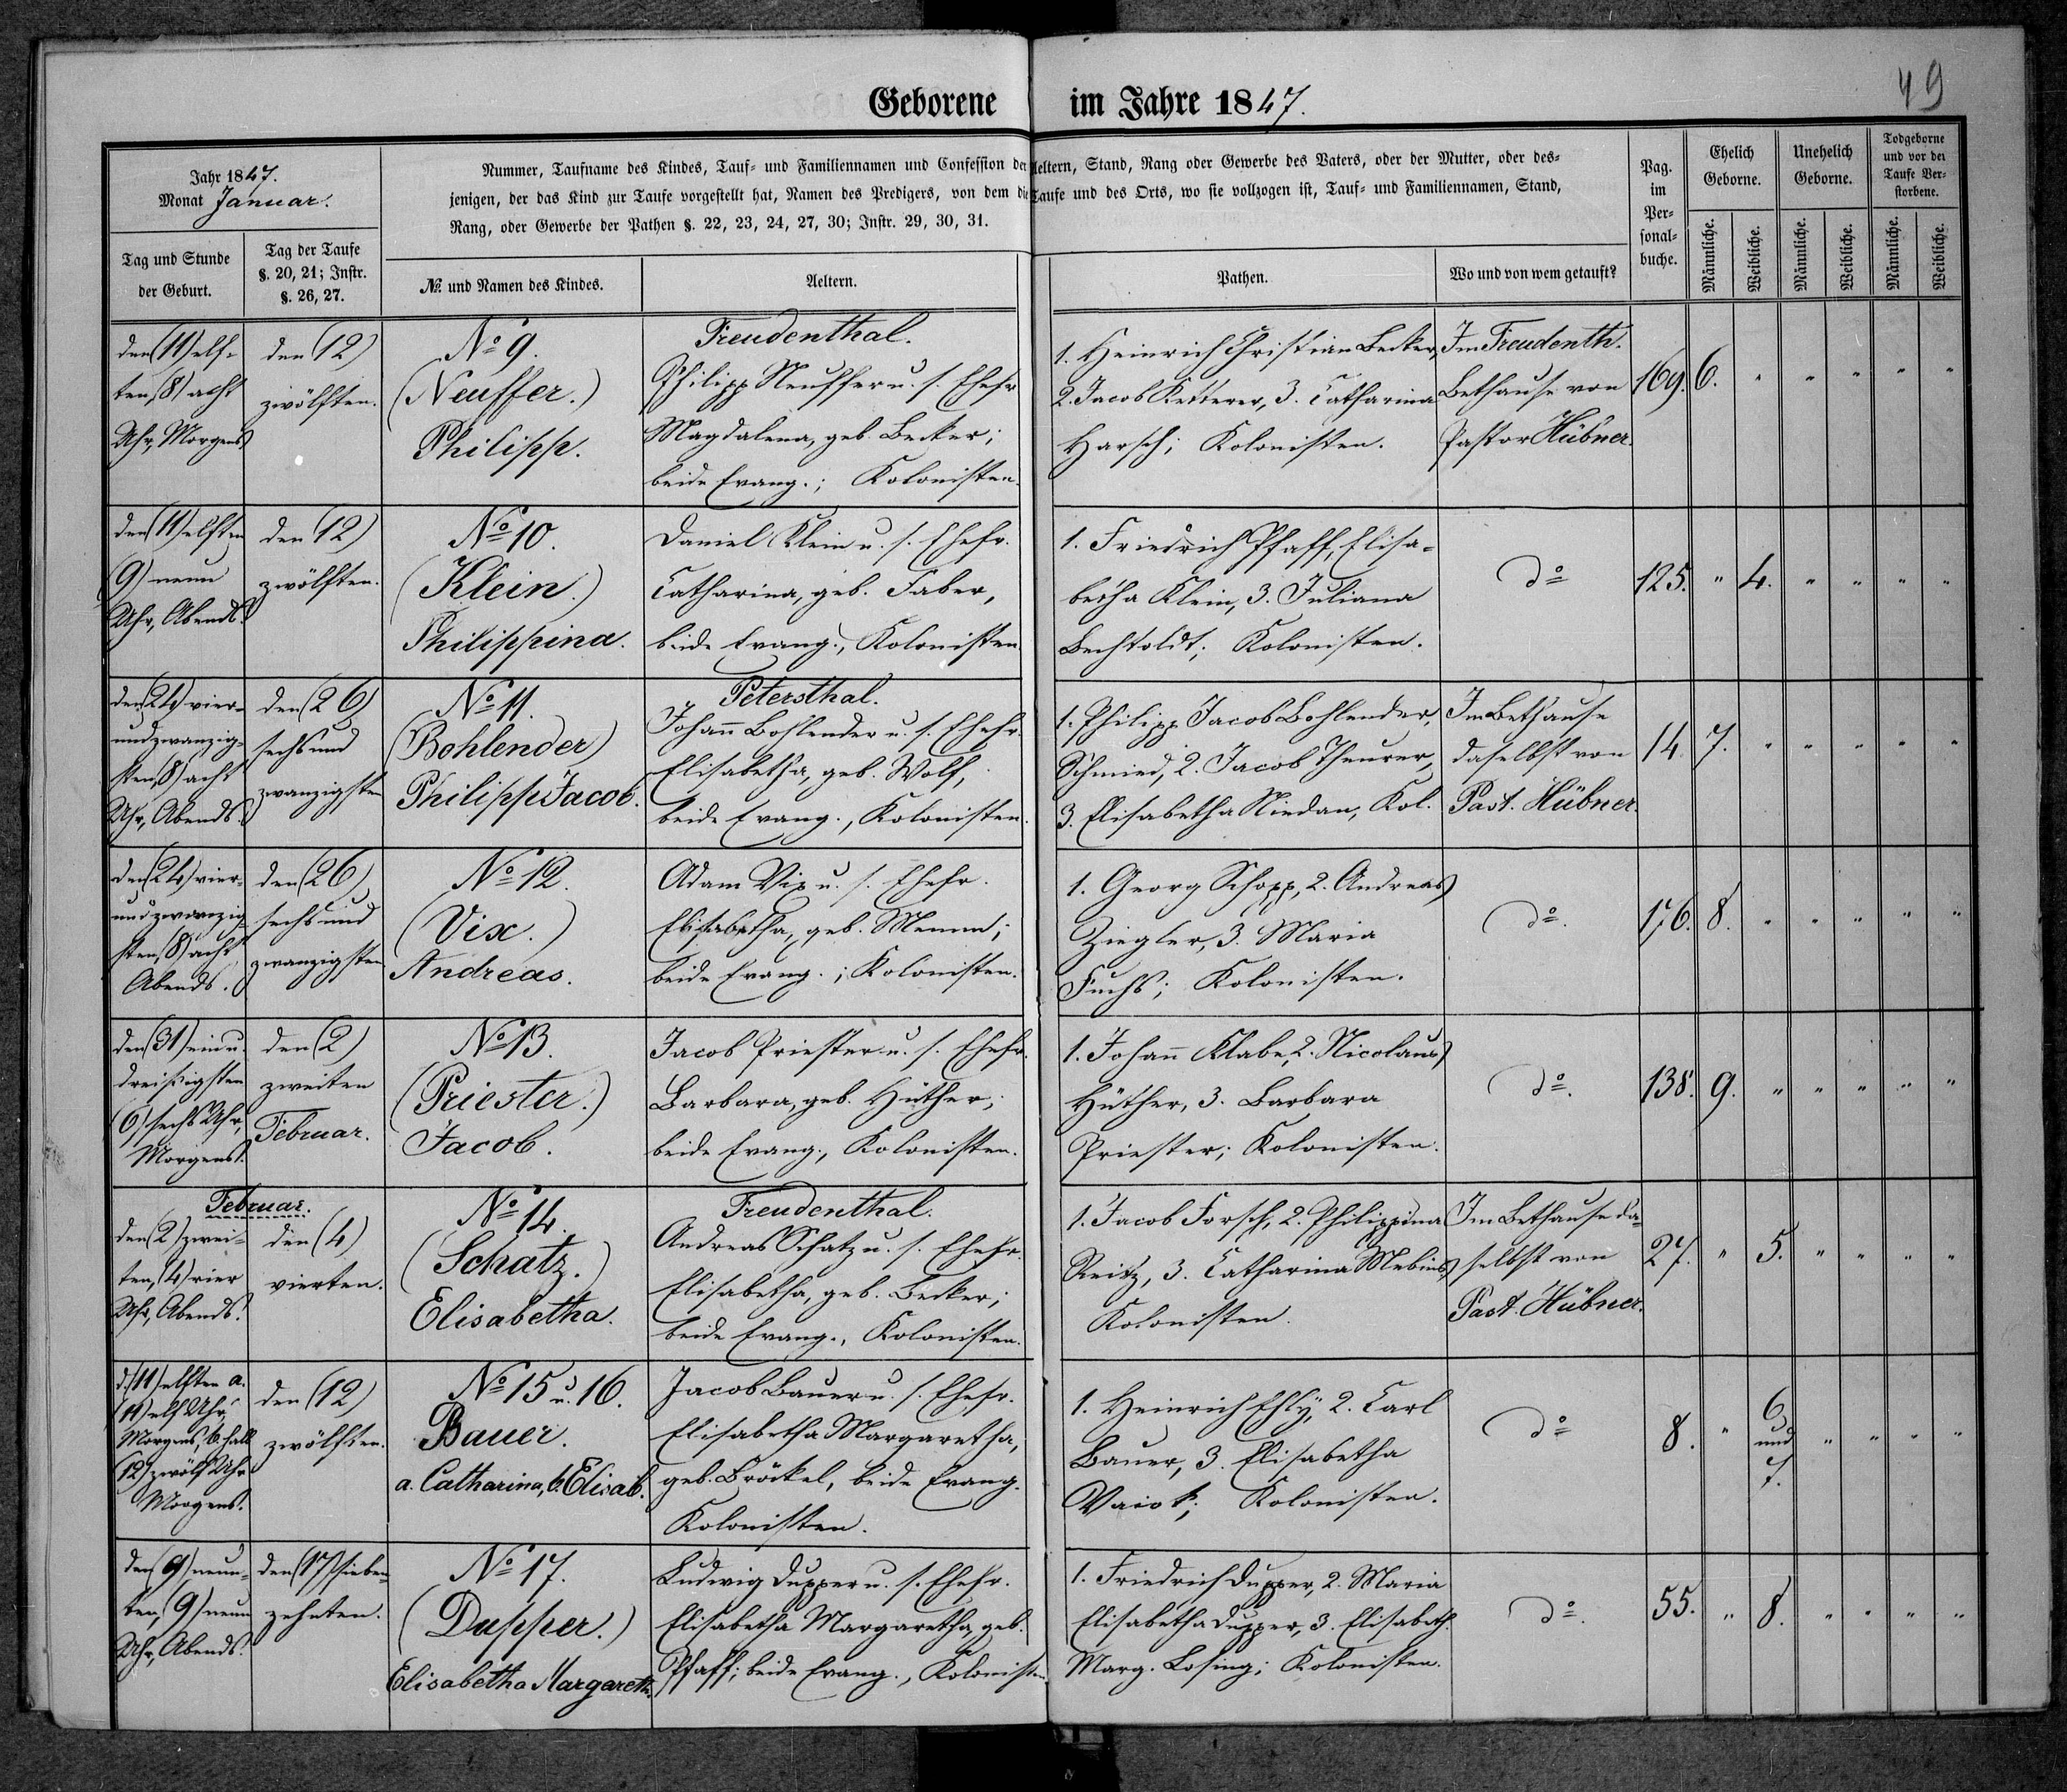 49
Geborene im Jahre 1847.
Jahr 1847.
Monat Januar.
Nummer, Taufname des Kindes, Tauf- und Familiennamen und Confession der Aeltern, Stand, Rang oder Gewerbe des Vaters, oder der Mutter, oder des-
jenigen, der das Kind zur Taufe vorgestellt hat, Namen des Predigers, von dem die Taufe und des Orts, wo sie vollzogen ist, Tauf- und Familiennamen, Stand,
Rang, oder Gewerbe der Pathen §. 22, 23, 24, 27, 30; Instr. 29, 30, 31.
Pag.
im
Per-
sonal-
buche.
Ehelich
Geborne.
Unehelich
Geborne.
Todgeborne
und vor der
Taufe Ver-
storbene.
Tag und Stunde
der Geburt.
Tag der Taufe
§. 20, 21; Instr.
§. 26, 27.
№. und Namen des Kindes.
Aeltern.
Pathen.
Wo und von wem getauft?
Männliche.
Weibliche.
Männliche.
Weibliche.
Männliche.
Weibliche.
den (11) elf-
ten, (8) acht
Uhr, Morgens
den (12)
zwölften.
No 9.
(Neuffer.)
Philipp.
Freudenthal.
Philipp Neuffer u. s. Ehefr.
Magdalena, geb. Becker;
beide Evang.; Kolonisten.
1. Heinrich Christian Becker,
2. Jacob Ketterer, 3. Catharina
Harsch; Kolonisten.
Im Freudenth.
Bethause von
Pastor Hübner.
169. 6. " " " " "
den (11) elften
(9) neun
Uhr, Abends.
den (12)
zwölften.
No 10.
(Klein.)
Philippina.
Daniel Klein u. s. Ehefr.
Catharina, geb. Faber,
beide Evang., Kolonisten.
1. Friedrich Pfaff, Elisa-
betha Klein, 3. Juliana
Bechtoldt; Kolonisten.
do
125. " 4. " " " "
den (24) vier-
undzwanzig-
sten, (8) acht
Uhr, Abends.
den (26)
sechsund
zwanzigsten
No 11.
(Bohlender)
Philipp Jacob.
Petersthal.
Johann Bohlender u. s. Ehefr.
Elisabetha, geb. Wolf,
beide Evang., Kolonisten.
1. Philipp Jacob Bohlender,
Schmied, 2. Jacob Theurer,
3. Elisabetha Niedan, Kol.
Im Bethause
daselbst von
Past. Hübner.
14. 7. " " " " "
den (24) vier-
undzwanzig-
sten, (8) acht
Abends.
den (26)
sechsund
zwanzigsten
No 12.
(Vix.)
Andreas.
Adam Vix u. s. Ehefr.
Elisabetha, geb. Memm;
beide Evang.; Kolonisten.
1. Georg Schopp, 2. Andreas
Ziegler, 3. Maria
Fuchs; Kolonisten.
do.
176. 8. " " " " "
den (31) ein u.
dreißigsten
(6) sechs Uhr,
Morgens.
den (2)
zweiten
Februar.
No 13.
(Priester.)
Jacob.
Jacob Priester u. s. Ehefr.
Barbara, geb. Hüther;
beide Evang., Kolonisten.
1. Johann Klabe, 2. Nicolaus
Hüther, 3. Barbara
Priester; Kolonisten.
do.
138. 9. " " " " "
Februar.
den (2) zwei-
ten, (4) vier
Uhr, Abends.
den (4)
vierten.
No 14.
(Schatz.)
Elisabetha.
Freudenthal.
Andreas Schatz u. s. Ehefr.
Elisabetha, geb. Becker;
beide Evang., Kolonisten.
1. Jacob Forsch, 2. Philippina
Reitz, 3. Catharina Mebius
Kolonisten.
Im Bethause da-
selbst von
Past. Hübner.
27. " 5. " " " "
d. (11) elften a.
(11) elf Uhr,
Morgens, b. halb
(12) zwölf Uhr
Morgens.
den (12)
zwölften.
No 15 u. 16.
Bauer.
a. Catharina, b. Elisab.
Jacob Bauer u. s. Ehefr.
Elisabetha Margaretha,
geb. Bröckel, beide Evang.
Kolonisten.
1. Heinrich Ehly, 2. Carl
Bauer, 3. Elisabetha
Kolonisten.
do
8. " 6 und 7. " " " "
den (9) neun-
ten, (9) neun
Uhr, Abends.
den (17) sieben-
zehnten.
No 17.
(Dupper.)
Elisabetha Margareth.
Ludwig Dupper u. s. Ehefr.
Elisabetha Margaretha, geb.
Pfaff; beide Evang., Kolonisten
1. Friedrich Dupper, 2. Maria
Elisabetha Dupper, 3. Elisabeth.
Marg. Losing; Kolonisten.
do.
55. " 8. " " " "